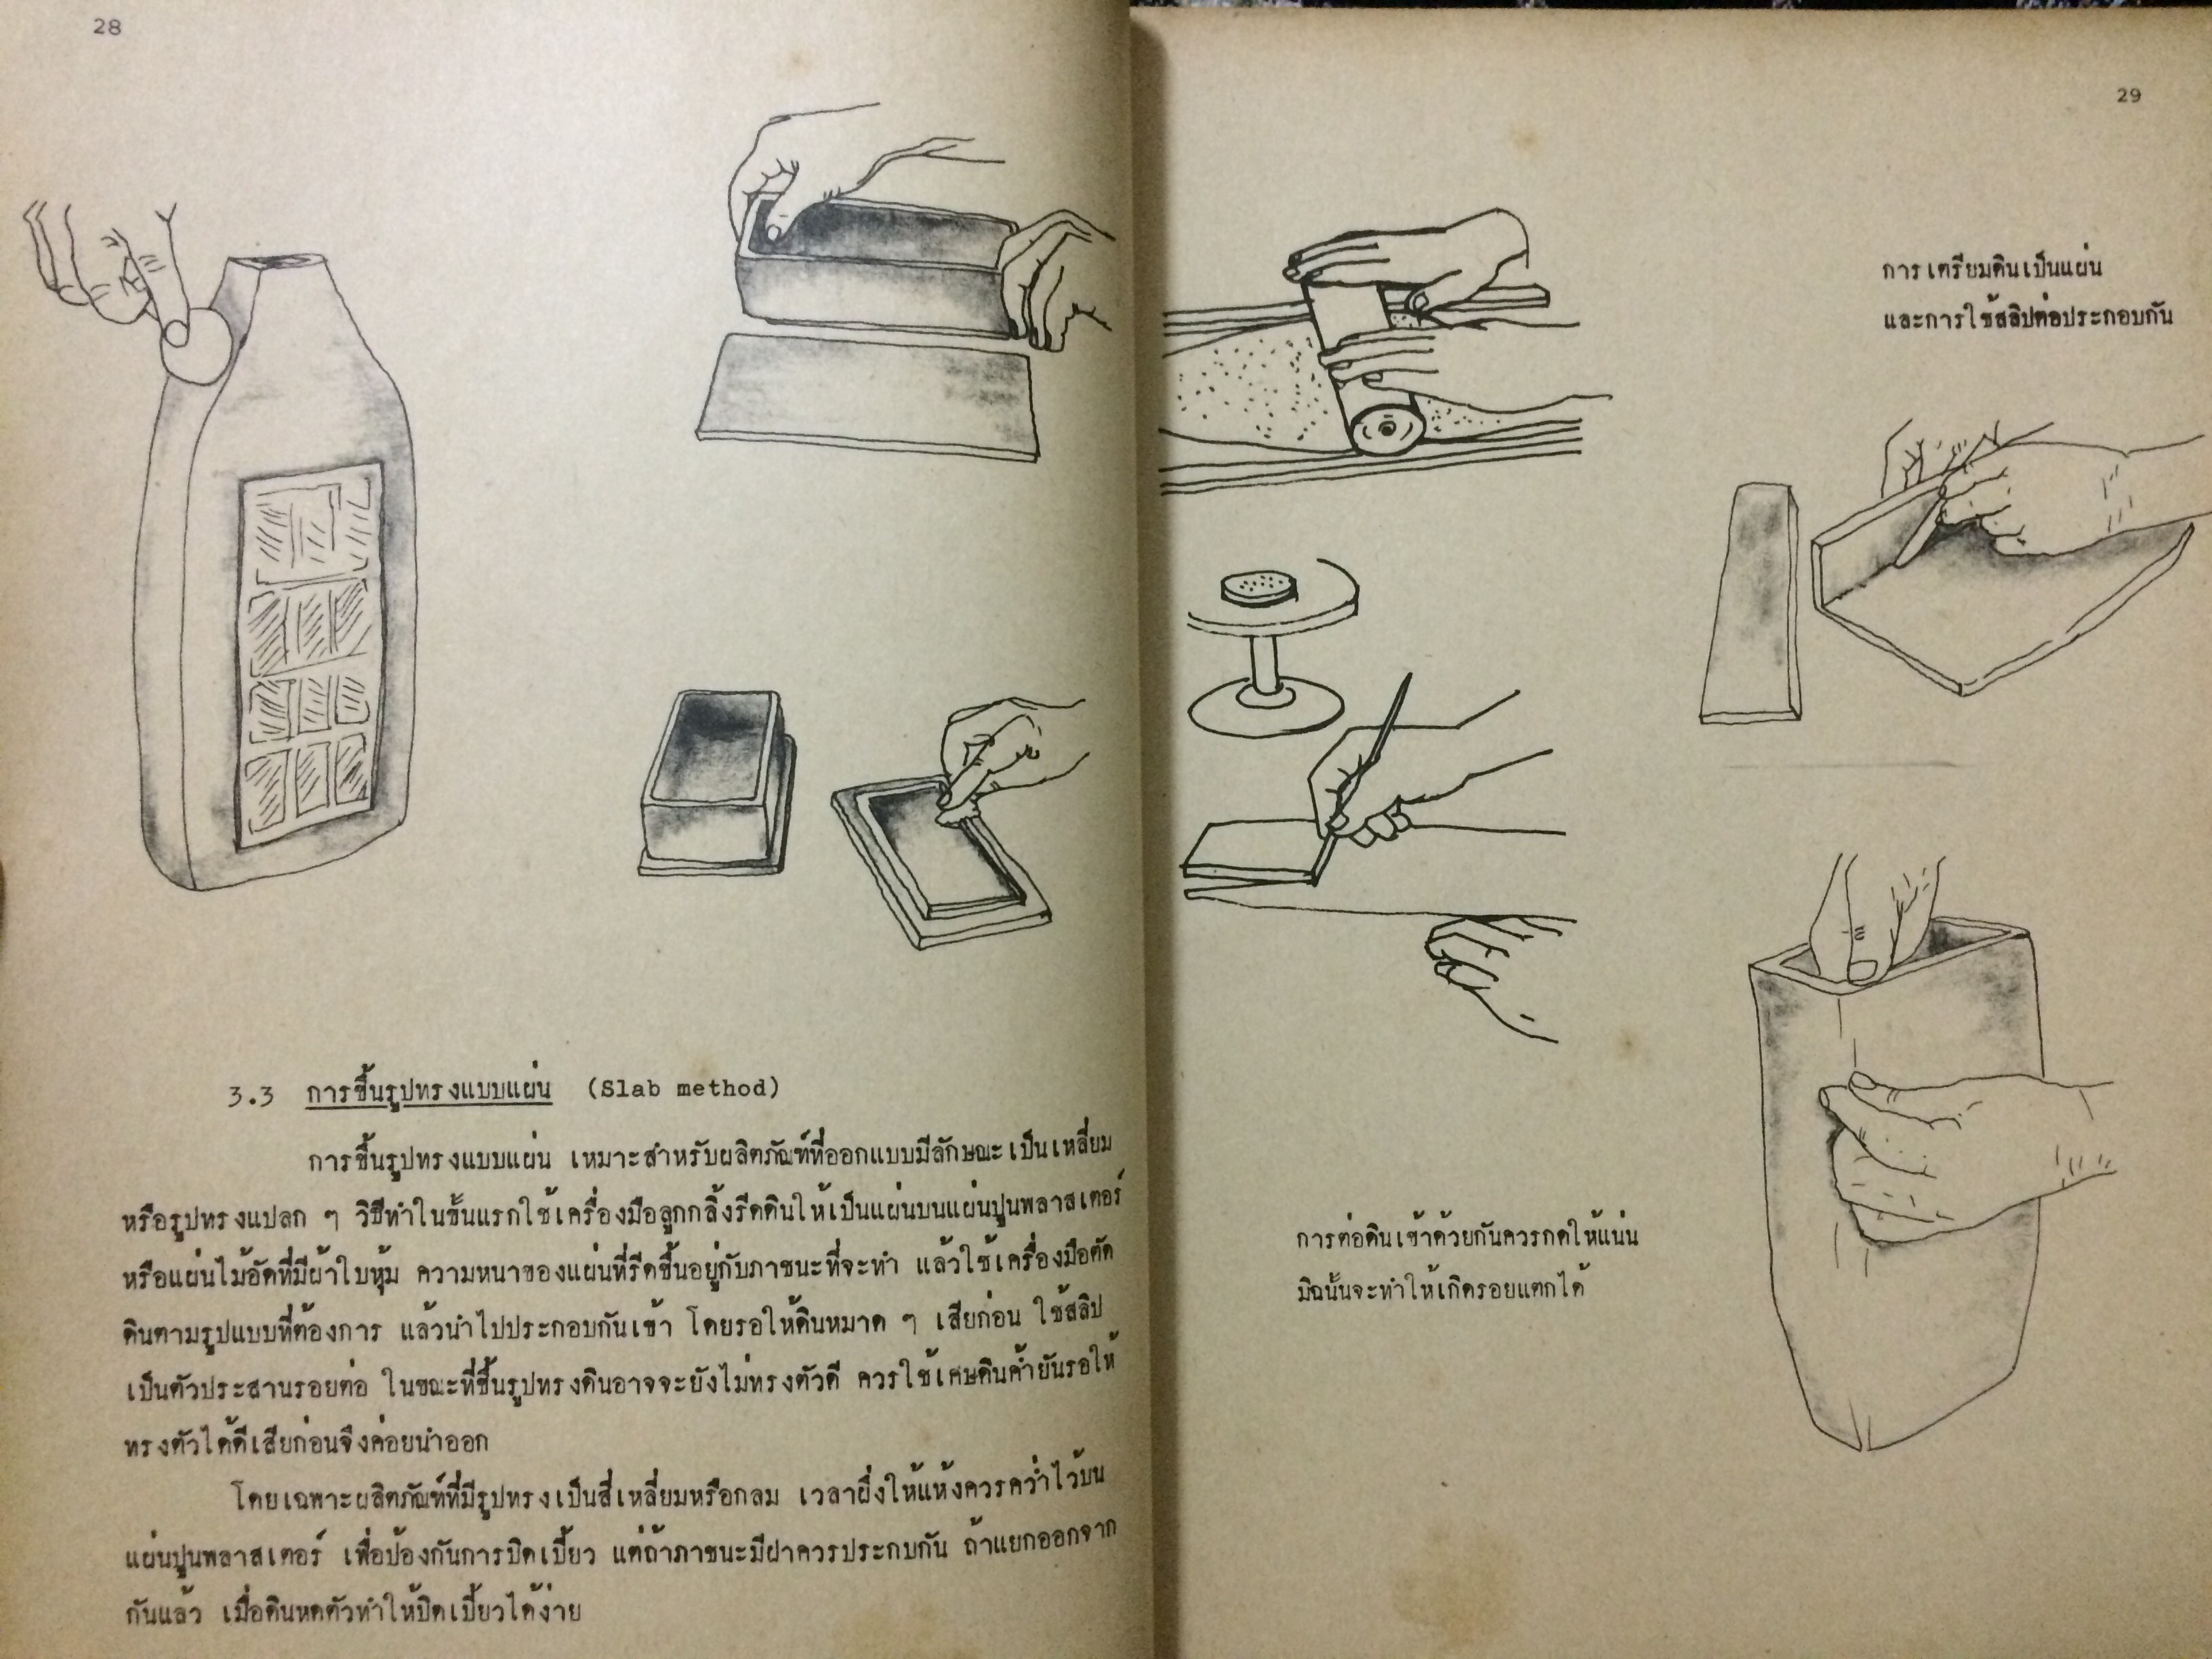 28
3.3 การขึ้นรูปทรงแบบแผ่น (Slab method)
การขึ้นรูปทรงแบบแผ่น เหมาะสำหรับผลิตภัณฑ์ที่ออกแบบมีลักษณะเป็นเหลี่ยม
หรือรูปทรงแปลก ๆ วิธีทำในขั้นแรกใช้เครื่องมือลูกกลิ้งรีดดินให้เป็นแผ่นบนแผ่นปูนพลาสเตอร์
หรือแผ่นไม้อัดที่มีผ้าใบหุ้ม ความหนาของแผ่นที่รีดขึ้นอยู่กับภาชนะที่จะทำ แล้วใช้เครื่องมือตัด
ดินตามรูปแบบที่ต้องการ แล้วนำไปประกอบกันเข้า โดยรอให้ดินหมาด ๆ เสียก่อน ใช้สลิป
เป็นตัวประสานรอยต่อ ในขณะที่ขึ้นรูปทรงดินอาจจะยังไม่ทรงตัวดี ควรใช้เศษดินค้ำยันรอให้
ทรงตัวได้ดีเสียก่อนจึงค่อยนำออก
โดยเฉพาะผลิตภัณฑ์ที่มีรูปทรงเป็นสี่เหลี่ยมหรือกลม เวลาผึ่งให้แห้งควรคว่ำไว้บน
แผ่นปูนพลาสเตอร์ เพื่อป้องกันการบิดเบี้ยว แต่ถ้าภาชนะมีฝาควรประกบกัน ถ้าแยกออกจาก
กันแล้ว เมื่อดินหดตัวทำให้บิดเบี้ยวได้ง่าย
29
การเตรียมดินเป็นแผ่น
และการใช้สลิปต่อประกอบกัน
การต่อดินเข้าด้วยกันควรกดให้แน่น
มิฉนั้นจะทำให้เกิดรอยแตกได้